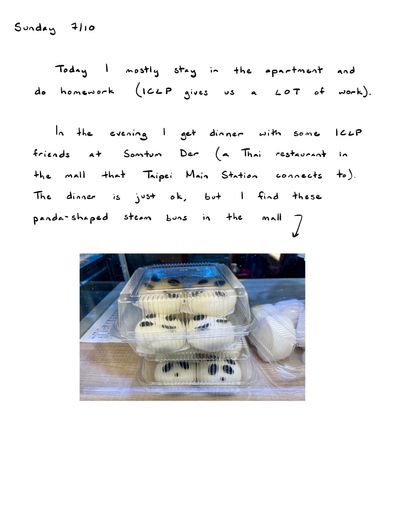 Sunday 7/10
Today I mostly stay in the apartment and
do homework (ICLP gives us a LOT of work).
In the evening I get dinner with some ICLP
friends at Somtum Der (a Thai restaurant in
the mall that Taipei Main Station connects to).
The dinner is just ok, but I find these
panda-shaped steam buns in the mall